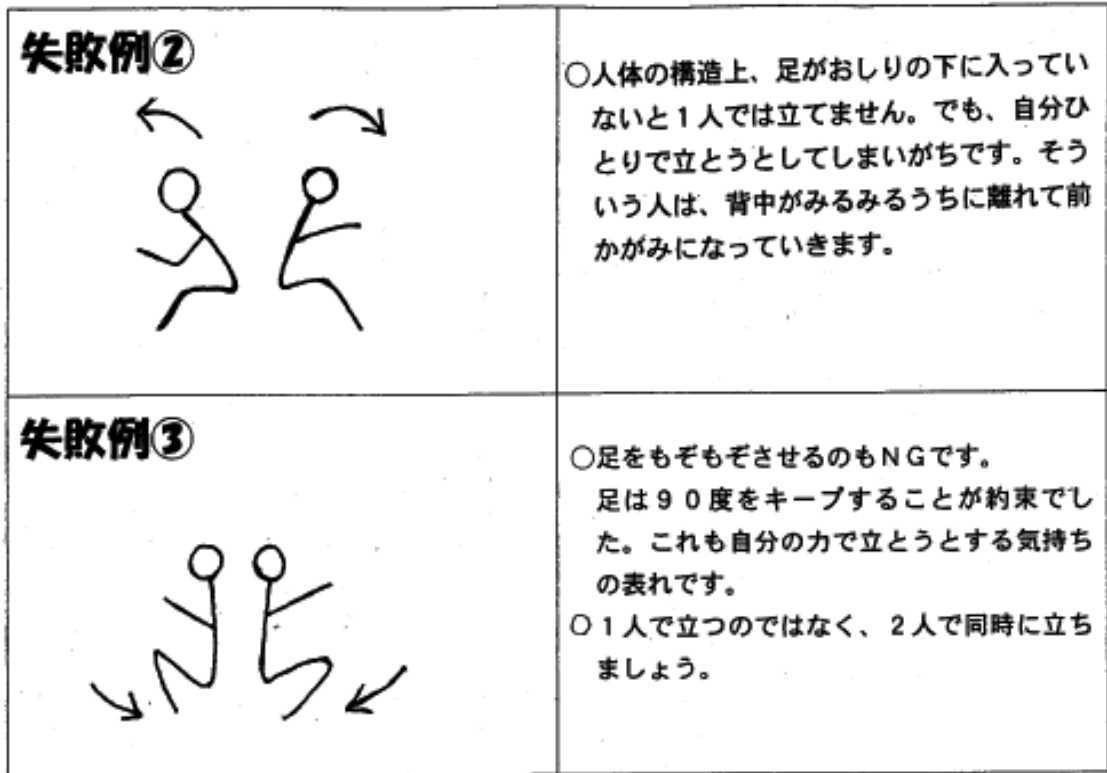 失敗例②
○人体の構造上、足がおしりの下に入ってい
ないと1人では立てません。でも、自分ひ
とりで立とうとしてしまいがちです。そう
いう人は、背中がみるみるうちに離れて前
かがみになっていきます。
失敗例③
○足をもぞもぞさせるのもNGです。
足は90度をキープすることが約束でし
た。これも自分の力で立とうとする気持ち
の表れです。
○1人で立つのではなく、2人で同時に立ち
ましょう。